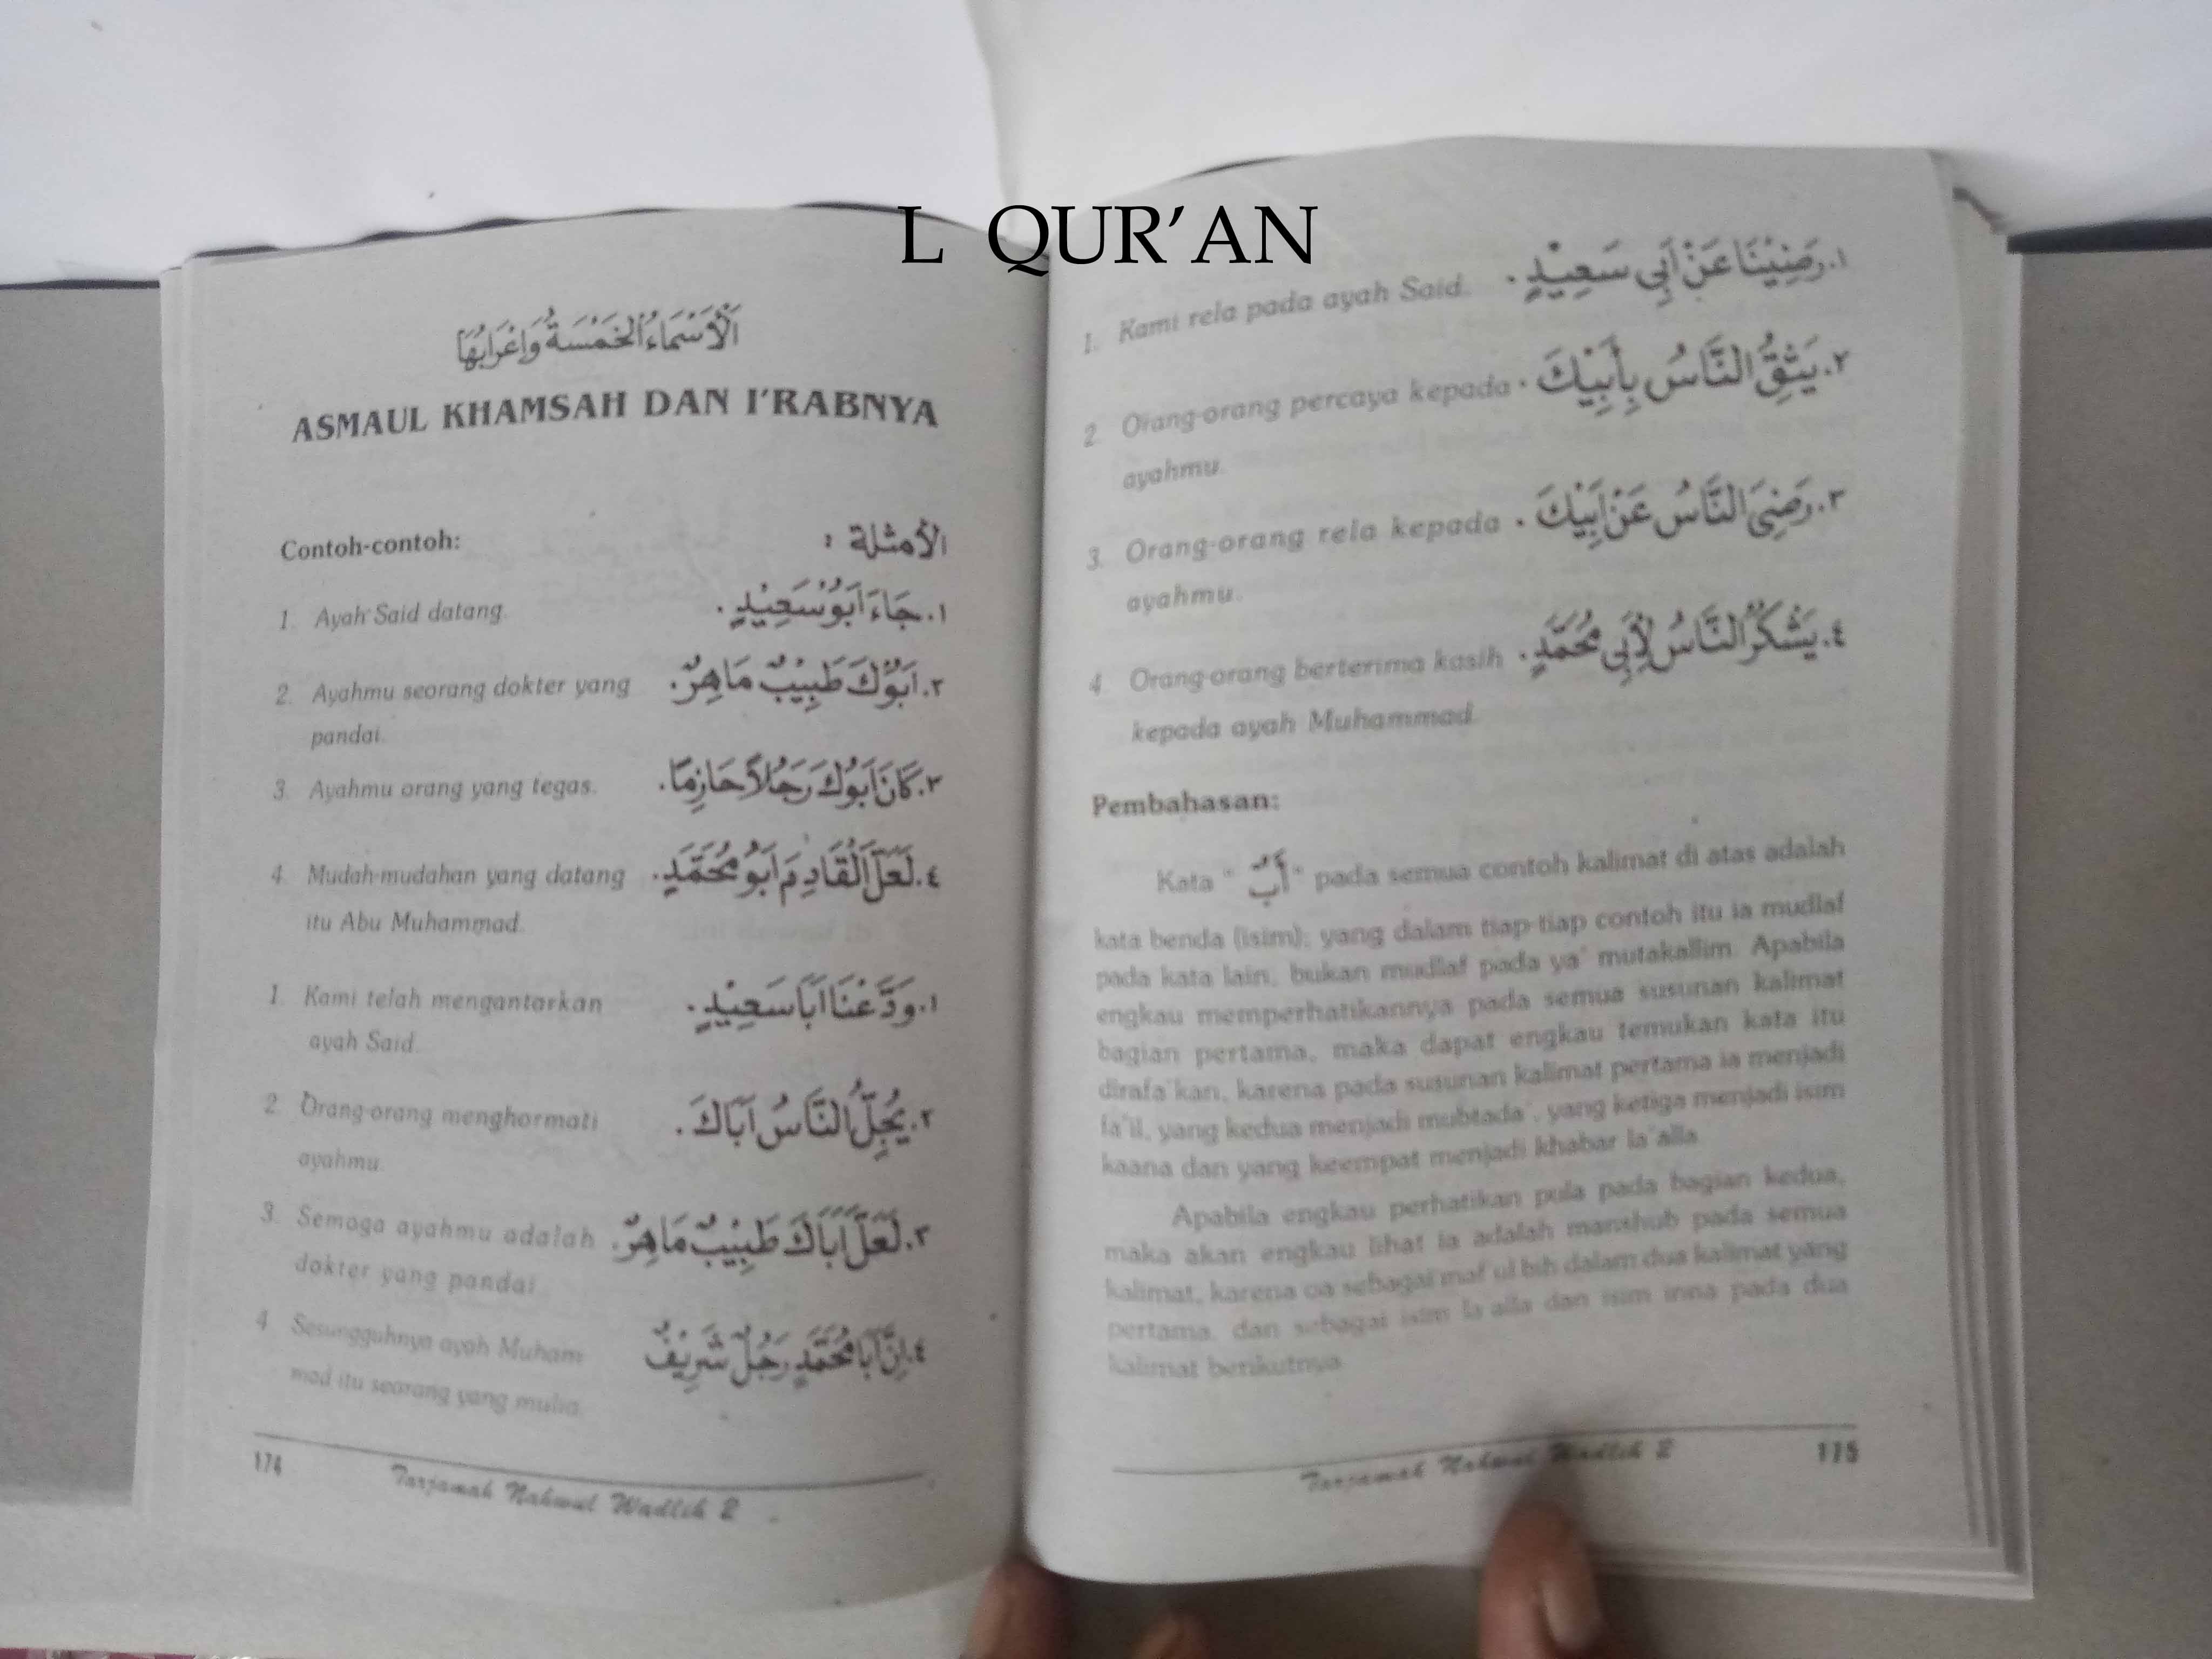 L QUR'AN
اَلْأَسْمَاءُ الْخَمْسَةُ وَإِعْرَابُهَا
ASMAUL KHAMSAH DAN I'RABNYA
Contoh-contoh: الأمثلة :
1. Ayah Said datang. ١. جَاءَ اَبُوْ سَعِيْدٍ .
2. Ayahmu seorang dokter yang ٢. اَبُوْكَ طَبِيْبٌ مَاهِرٌ.
pandai.
3. Ayahmu orang yang tegas. ٣. كَانَ اَبُوْكَ رَجُلاً حَازِمًا.
4. Mudah-mudahan yang datang ٤. لَعَلَّ الْقَادِمَ اَبُوْ مُحَمَّدٍ.
itu Abu Muhammad.
1. Kami telah mengantarkan ١. وَدَّعْنَا اَبَا سَعِيْدٍ.
ayah Said.
2. Orang-orang menghormati ٢. يُجِلُّ النَّاسُ اَبَاكَ .
ayahmu.
3. Semoga ayahmu adalah ٣. لَعَلَّ اَبَاكَ طَبِيْبٌ مَاهِرٌ.
dokter yang pandai.
4. Sesungguhnya ayah Muham ٤. اِنَّ اَبَا مُحَمَّدٍ رَجُلٌ شَرِيْفٌ
mad itu seorang yang mulia.
174 Tarjamah Nahwul Wadlih 2
1. Kami rela pada ayah Said. ١. رَضِيْنَا عَنْ اَبِى سَعِيْدٍ .
2. Orang-orang percaya kepada ٢. يَثِقُ النَّاسُ بِأَبِيْكَ .
ayahmu.
3. Orang-orang rela kepada ٣. رَضِىَ النَّاسُ عَنْ اَبِيْكَ .
ayahmu.
4. Orang-orang berterima kasih ٤. يَشْكُرُ النَّاسُ لِأَبِى مُحَمَّدٍ .
kepada ayah Muhammad.
Pembahasan:
Kata " أَبٌ " pada semua contoh kalimat di atas adalah
kata benda (isim); yang dalam tiap-tiap contoh itu ia mudlaf
pada kata lain, bukan mudlaf pada ya' mutakallim. Apabila
engkau memperhatikannya pada semua susunan kalimat
bagian pertama, maka dapat engkau temukan kata itu
dirafa'kan, karena pada susunan kalimat pertama ia menjadi
fa'il, yang kedua menjadi mubtada', yang ketiga menjadi isim
kaana dan yang keempat menjadi khabar la'alla.
Apabila engkau perhatikan pula pada bagian kedua,
maka akan engkau lihat ia adalah manshub pada semua
kalimat, karena oa sebagai maf'ul bih dalam dua kalimat yang
pertama, dan sebagai isim la'alla dan isim inna pada dua
kalimat berikutnya.
Tarjamah Nahwul Wadlih 2 175